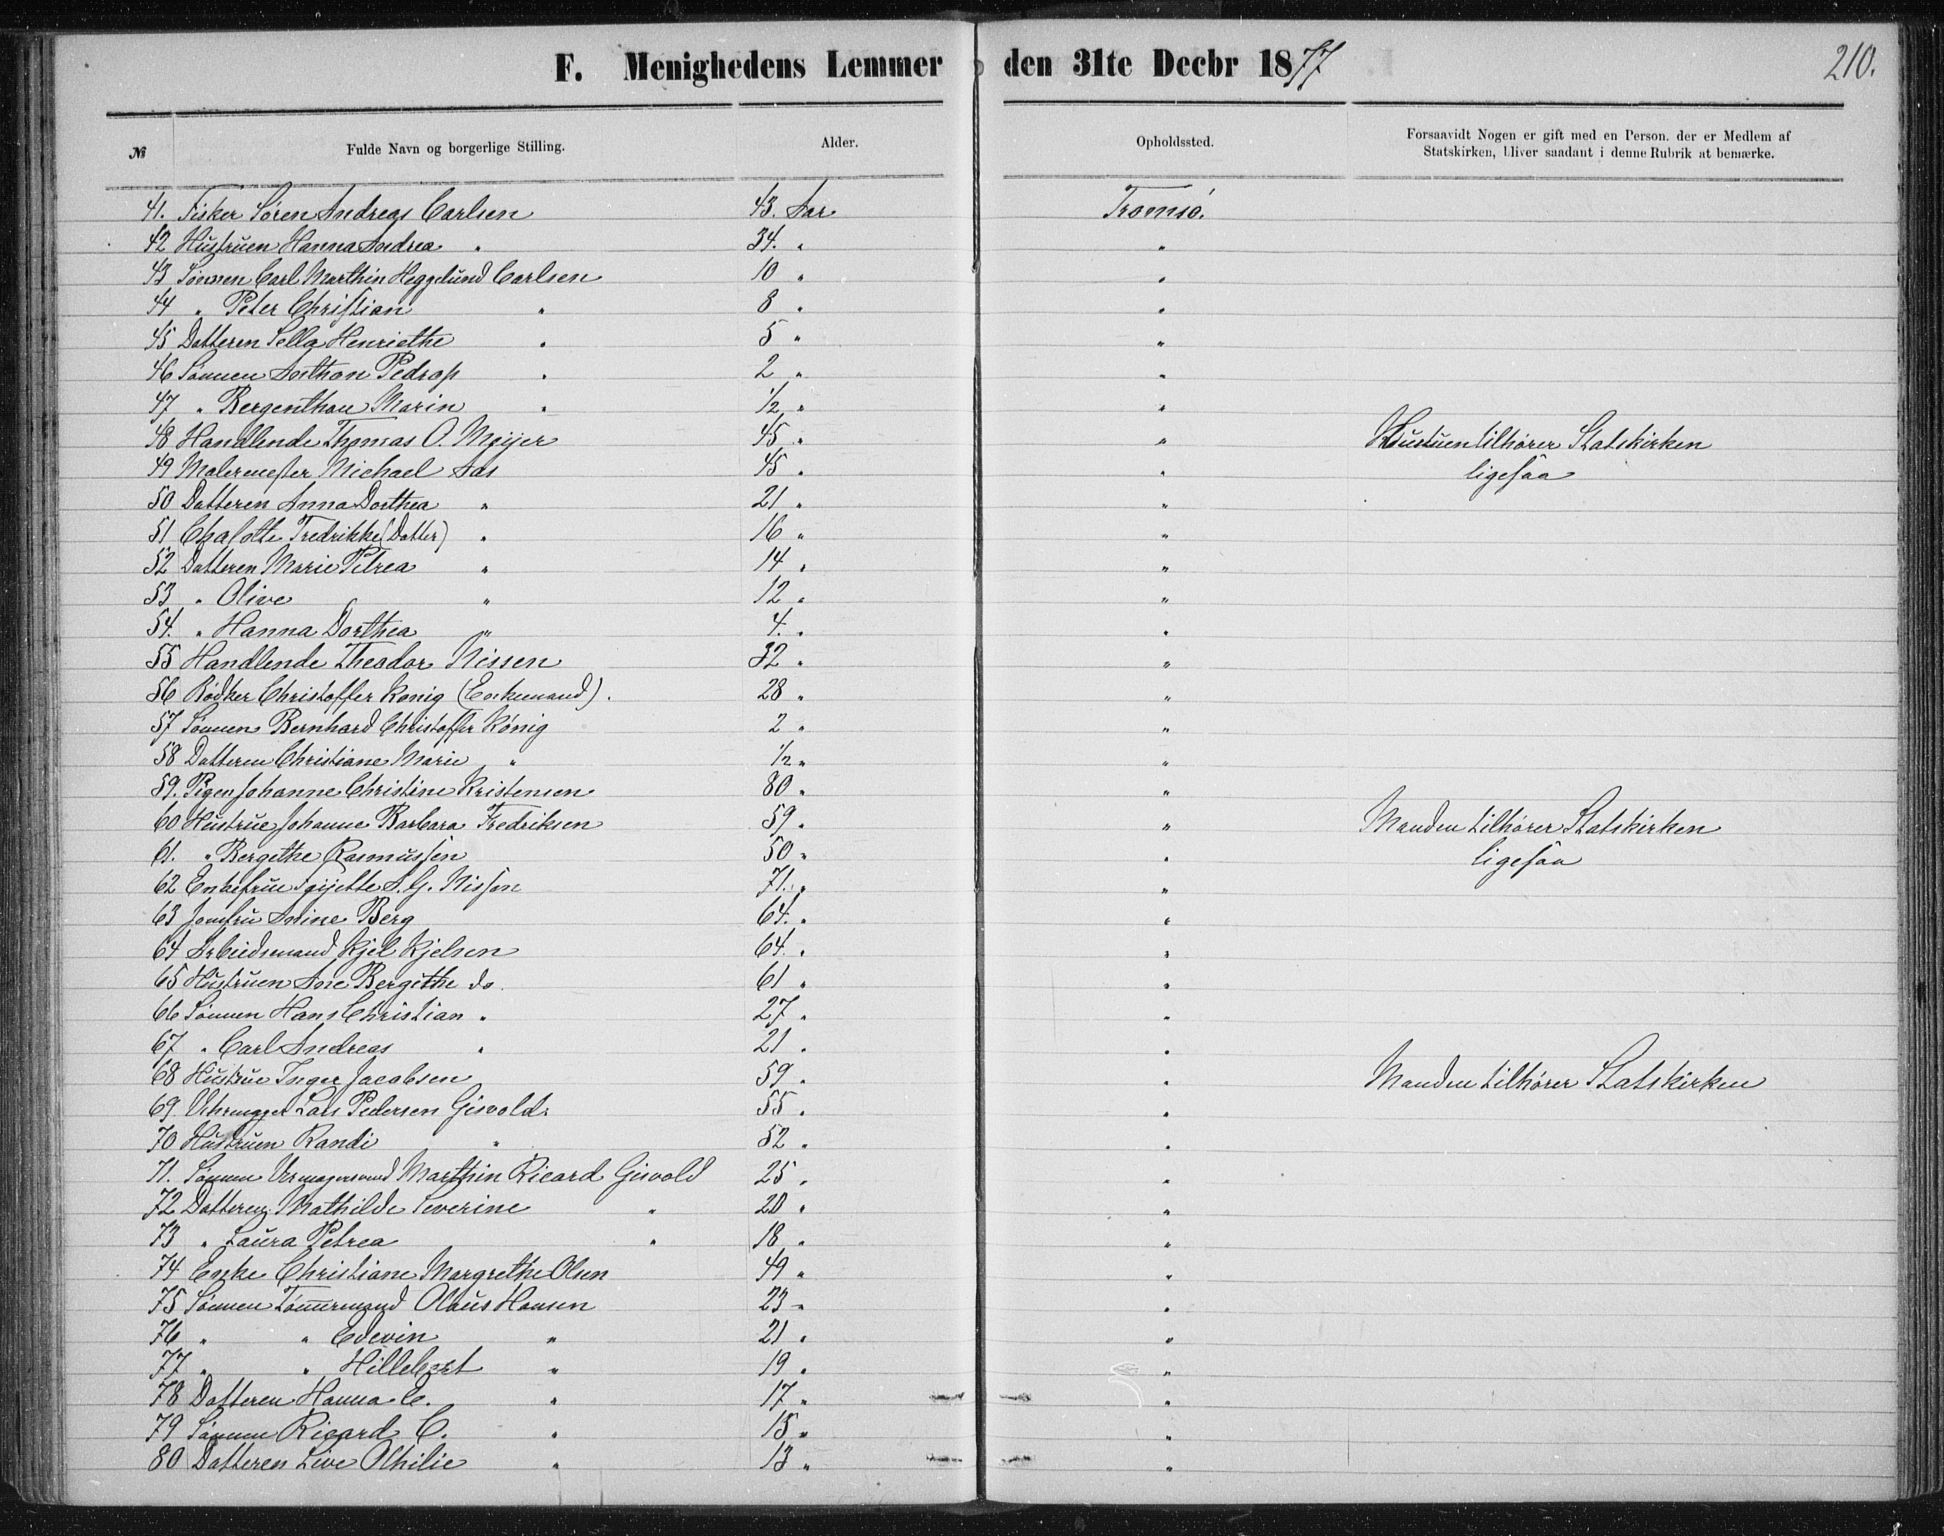 F. Menighedens Lemmer den 31te Decbr 1877
210.
№ Fulde Navn og borgerlige Stilling. Alder. Opholdssted. Forsaavidt Nogen er gift med en Person, der er Medlem af
Statskirken, bliver saadant i denne Rubrik at bemærke.
41. Fisker Søren Andreas Carlsen 43. Aar Tromsø.
42 Hustruen Hanna Andrea " 34. " "
43 Sønnen Carl Marthin Heggelund Carlsen 10 " "
44 " Peter Christian " 8 " "
45 Datteren Sella Henriethe " 5 " "
46 Sønnen Anthon Pedrop " 2 " "
47 " Bergenthon Marin " 1/2 " "
48 Handlende Thomas O. Meijer 45 " " Hustruen tilhører Statskirken
49 Malermester Michael Aas 45 " " ligesaa
50 Datteren Anna Dorthea " 21 " "
51 Chalotte Fredrikke (Datter) " 16 " "
52 Datteren Marie Petrea " 14 " "
53 " Olive " 12 " "
54. " Hanna Dorthea " 4. " "
55 Handlende Theodor Nissen 32 " "
56 Bødker Christoffer König (Enkemand). 28 " "
57 Sønnen Bernhard Christoffer König 2 " "
58 Datteren Christiane Marie " 1/2 " "
59. Pigen Johanne Christine Kristensen 80 " "
60 Hustrue Johanne Barbara Fredriksen 59 " " Manden tilhører Statskirken
61. " Bergethe Rasmussen 50 " " ligesaa
62 Enkefrue A. G. Nissen 71. " "
63 Jomfru Anine Berg 64. " "
64 Arbeidsmand Kjel Kjelsen 64. " "
65 Hustruen Ane Bergithe do. 61 " "
66 Sønnen Hans Christian " 27 " "
67 " Carl Andreas " 21 " "
68 Hustrue Inger Jacobsen 59 " " Manden tilhører Statskirken
69. Lars Pedersen Gisvold 55 " "
70 Hustruen Randi " 52 " "
71. Sønnen Marthin Ricard Gisvold 25 " "
72 Datteren Mathilde Severine " 20 " "
73 " Laura Petrea " 18 " "
74 Enke Christiane Margrethe Olsen 49 " "
75 Sønnen Tømmermand Olaus Hansen 23 " "
76 " " Edevin " 21 " "
77 " " Hillebert " 19 " "
78 Datteren Hanna C. " 17 " "
79 Sønnen Ricard C. " 15 " "
80 Datteren Live Othilie " 13 " "